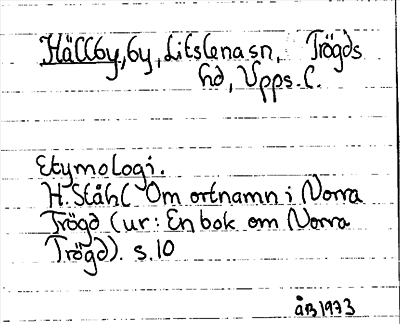 Hällby, by, Litslena sn, Trögds
hd, Upps. l.
Etymologi.
H. Ståhl Om ortnamn i Norra
Trögd (ur: En bok om Norra
Trögd). s. 10
ÅB 1973